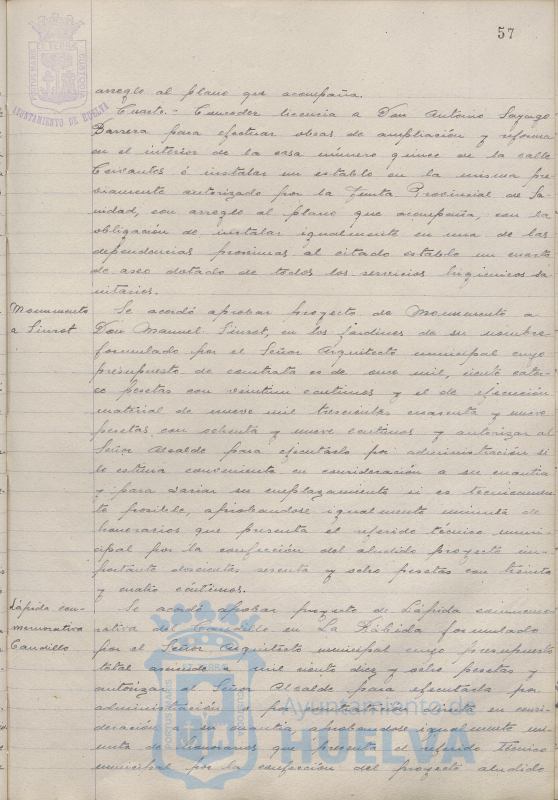 57
AYUNTAMIENTO DE HUELVA
arreglo al plano que acompaña.
Cuarto.- Conceder licencia a Don Antonio Sayago
Barrera para efectuar obras de ampliación y reforma
en el interior de la casa número quince de la calle
Cervantes é instalar un establo en la misma pre-
viamente autorizado por la Junta Provincial de Sa-
nidad, con arreglo al plano que acompaña, con la
obligación de instalar igualmente en una de las
dependencias proximas al citado establo un cuarto
de aseo dotado de todos los servicios higienicos sa-
nitarios.
Monumento
a Siurot
Se acordó aprobar proyecto de Monumento a
Don Manuel Siurot, en los jardines de su nombre
formulado por el Señor Arquitecto municipal cuyo
presupuesto de contrata es de once mil, ciento cator-
ce pesetas con veintiun centimos y el de ejecución
material de nueve mil trescientas cuarenta y nueve
pesetas con ochenta y nueve centimos y autorizar al
Señor Alcalde para ejecutarlo por administración si
lo estima conveniente en consideración a su cuantia
y para variar su emplazamiento si es tecnicamen-
te posible, aprobandose igualmente minuta de
honorarios que presenta el referido técnico muni-
cipal por la confección del aludido proyecto im-
portante doscientas sesenta y ocho pesetas con treinta
y cuatro céntimos.
Lápida con-
memorativa
Caudillo
Se acordó aprobar proyecto de Lápida conmemo-
rativa del Caudillo en La Rábida formulado
por el Señor Arquitecto municipal cuyo presupuesto
total asciende a mil ciento diez y ocho pesetas y
autorizar al Señor Alcalde para ejecutarla por
administración o por contrata en vista en consi-
deración a su cuantia aprobandose igualmente mi-
nuta de honorarios que presenta el referido Técnico
municipal por la confección del proyecto aludido
Ayuntamiento de
HUELVA